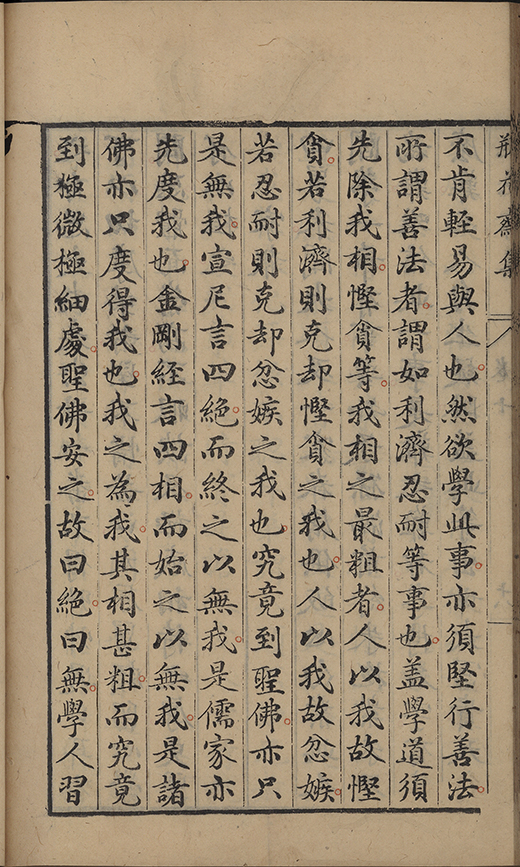 瓶花齋集
不肯輕易與人也然欲學此事亦須堅行善法
所謂善法者謂如利濟忍耐等事也盖學道須
先除我相慳貪等我相之最粗者人以我故慳
貪若利濟則克却慳貪之我也人以我故忿嫉
若忍耐則克却忿嫉之我也究竟到聖佛亦只
是無我宣尼言四絶而終之以無我是儒家亦
先度我也金剛經言四相而始之以無我是諸
佛亦只度得我也我之為我其相甚粗而究竟
到極微極細處聖佛安之故曰絶曰無學人習